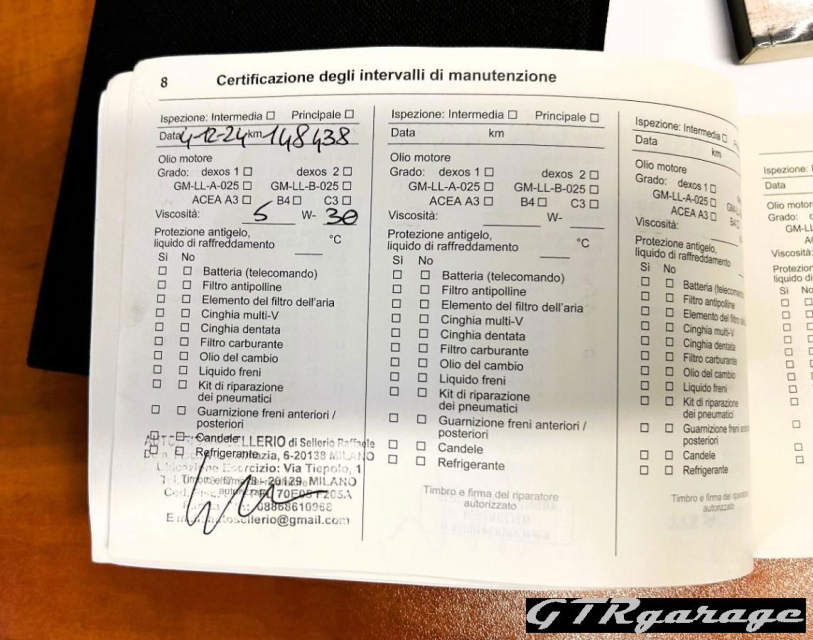 8 Certificazione degli intervalli di manutenzione
Ispezione: Intermedia □ Principale □
Data 4-12-24 km 148438
Olio motore
Grado: dexos 1 □ dexos 2 □
GM-LL-A-025 □ GM-LL-B-025 □
ACEA A3 □ B4 □ C3 □
Viscosità: 5 W- 30
Protezione antigelo,
liquido di raffreddamento °C
Sì No
□ □ Batteria (telecomando)
□ □ Filtro antipolline
□ □ Elemento del filtro dell'aria
□ □ Cinghia multi-V
□ □ Cinghia dentata
□ □ Filtro carburante
□ □ Olio del cambio
□ □ Liquido freni
□ □ Kit di riparazione
dei pneumatici
□ □ Guarnizione freni anteriori /
posteriori
□ □ Candele
□ □ Refrigerante
SELLERIO di Sellerio Raffaele
6-20138 MILANO
Esercizio: Via Tiepolo, 1
20129 MILANO
08868610968
@gmail.com
Ispezione: Intermedia □ Principale □
Data km
Olio motore
Grado: dexos 1 □ dexos 2 □
GM-LL-A-025 □ GM-LL-B-025 □
ACEA A3 □ B4 □ C3 □
Viscosità: W-
Protezione antigelo,
liquido di raffreddamento °C
Sì No
□ □ Batteria (telecomando)
□ □ Filtro antipolline
□ □ Elemento del filtro dell'aria
□ □ Cinghia multi-V
□ □ Cinghia dentata
□ □ Filtro carburante
□ □ Olio del cambio
□ □ Liquido freni
□ □ Kit di riparazione
dei pneumatici
□ □ Guarnizione freni anteriori /
posteriori
□ □ Candele
□ □ Refrigerante
Timbro e firma del riparatore
autorizzato
Ispezione: Intermedia □
Data km
Olio motore
Grado: dexos 1 □
GM-LL-A-025 □
ACEA A3 □ B4
Viscosità:
Protezione antigelo,
liquido di raffreddamento
Sì No
□ □ Batteria
□ □ Filtro antipolline
□ □ Elemento del
□ □ Cinghia multi-V
□ □ Cinghia dentata
□ □ Filtro carburante
□ □ Olio del cambio
□ □ Liquido freni
□ □ Kit di riparazione
dei pneumatici
□ □ Guarnizione freni
posteriori
□ □ Candele
□ □ Refrigerante
Timbro e firma del
autorizzato
Ispezione:
Data
Olio
Grado:
Viscosità:
liquido di
Sì No
GTRgarage